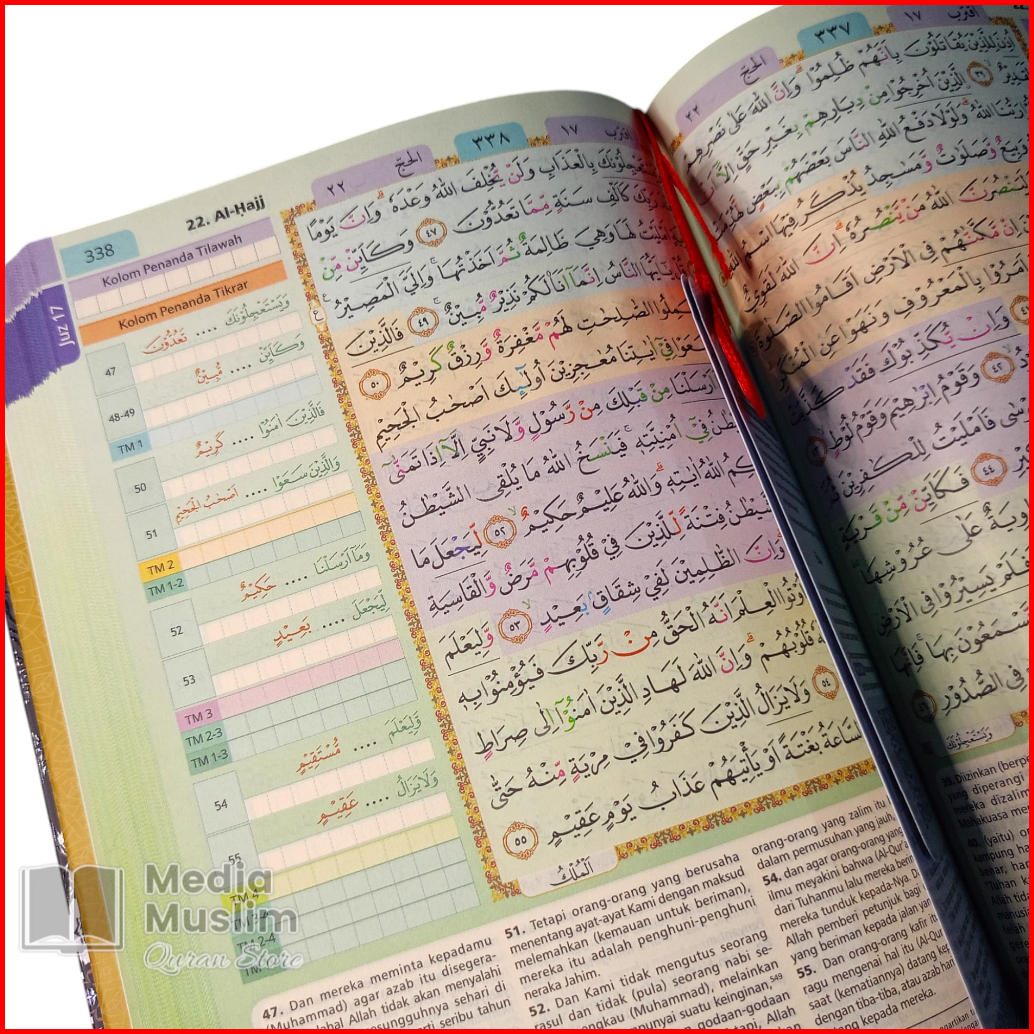 338
22. Al-Ḥajj
الحجّ ٢٢
٣٣٨
اقترب ١٧
Juz 17
Kolom Penanda Tilawah
Kolom Penanda Tikrar
47
وَيَسْتَعْجِلُوْنَكَ .... تَعُدُّوْنَ
48-49
وَكَاَيِّنْ .... مُّبِيْنٌ
TM 1
50
فَالَّذِيْنَ اٰمَنُوْا .... كَرِيْمٌ
51
وَالَّذِيْنَ سَعَوْا .... اَصْحٰبُ الْجَحِيْمِ
TM 2
TM 1-2
52
وَمَآ اَرْسَلْنَا .... حَكِيْمٌ
53
لِيَجْعَلَ .... بَعِيْدٍ
TM 3
TM 2-3
TM 1-3
54
وَلِيَعْلَمَ .... مُّسْتَقِيْمٍ
55
وَلَا يَزَالُ .... عَقِيْمٍ
TM 4
2-4
بِالْعَذَابِ وَلَنْ يُّخْلِفَ اللّٰهُ وَعْدَهٗۗ وَاِنَّ يَوْمًا
رَبِّكَ كَاَلْفِ سَنَةٍ مِّمَّا تَعُدُّوْنَ ٤٧ وَكَاَيِّنْ مِّنْ
لَهَا وَهِيَ ظَالِمَةٌ ثُمَّ اَخَذْتُهَاۚ وَاِلَيَّ الْمَصِيْرُ
النَّاسُ اِنَّمَآ اَنَا۠ لَكُمْ نَذِيْرٌ مُّبِيْنٌ ۚ ٤٩ فَالَّذِيْنَ
الصّٰلِحٰتِ لَهُمْ مَّغْفِرَةٌ وَّرِزْقٌ كَرِيْمٌ ٥٠
فِيْٓ اٰيٰتِنَا مُعٰجِزِيْنَ اُولٰۤىِٕكَ اَصْحٰبُ الْجَحِيْمِ
اَرْسَلْنَا مِنْ قَبْلِكَ مِنْ رَّسُوْلٍ وَّلَا نَبِيٍّ اِلَّآ اِذَا تَمَنّٰىٓ
فِيْٓ اُمْنِيَّتِهٖۚ فَيَنْسَخُ اللّٰهُ مَا يُلْقِى الشَّيْطٰنُ
اللّٰهُ اٰيٰتِهٖۗ وَاللّٰهُ عَلِيْمٌ حَكِيْمٌ ۙ ٥٢ لِّيَجْعَلَ مَا
فِتْنَةً لِّلَّذِيْنَ فِيْ قُلُوْبِهِمْ مَّرَضٌ وَّالْقَاسِيَةِ
وَاِنَّ الظّٰلِمِيْنَ لَفِيْ شِقَاقٍۢ بَعِيْدٍ ۙ ٥٣ وَّلِيَعْلَمَ
الْعِلْمَ اَنَّهُ الْحَقُّ مِنْ رَّبِّكَ فَيُؤْمِنُوْا بِهٖ
قُلُوْبُهُمْۗ وَاِنَّ اللّٰهَ لَهَادِ الَّذِيْنَ اٰمَنُوْٓا اِلٰى صِرَاطٍ
٥٤ وَلَا يَزَالُ الَّذِيْنَ كَفَرُوْا فِيْ مِرْيَةٍ مِّنْهُ حَتّٰى
بَغْتَةً اَوْ يَأْتِيَهُمْ عَذَابُ يَوْمٍ عَقِيْمٍ ٥٥
اَلْمُلْكُ
47. Dan mereka meminta kepadamu
(Muhammad) agar azab itu disegera-
Allah tidak akan menyalahi
sehari di
seribu tahun
51. Tetapi orang-orang yang berusaha
menentang ayat-ayat Kami dengan maksud
melemahkan (kemauan untuk beriman),
mereka itu adalah penghuni-penghuni
neraka Jahim.
52. Dan Kami tidak mengutus seorang
rasul dan tidak (pula) seorang nabi se-
(Muhammad), melainkan
suatu keinginan,
godaan-godaan
orang-orang yang zalim itu
dalam permusuhan yang jauh,
54. dan agar orang-orang yang
ilmu meyakini bahwa (Al-Qur'an)
dari Tuhanmu lalu mereka
mereka tunduk kepada-Nya.
Allah pemberi petunjuk bagi
yang beriman kepada jalan yang
55. Dan orang-orang kafir itu
ragu mengenai hal itu (Al-Qur
saat (kematiannya) datang
dengan tiba-tiba, atau azab hari
kepada mereka.
اقترب ١٧
٣٣٧
الحجّ ٢٢
اُذِنَ لِلَّذِيْنَ يُقَاتَلُوْنَ بِاَنَّهُمْ ظُلِمُوْاۗ وَاِنَّ اللّٰهَ عَلٰى نَصْرِهِمْ
٣٩ الَّذِيْنَ اُخْرِجُوْا مِنْ دِيَارِهِمْ بِغَيْرِ حَقٍّ اِلَّآ
اللّٰهُ ۗوَلَوْلَا دَفْعُ اللّٰهِ النَّاسَ بَعْضَهُمْ بِبَعْضٍ
وَّصَلَوٰتٌ وَّمَسٰجِدُ يُذْكَرُ فِيْهَا اسْمُ
اللّٰهُ مَنْ يَّنْصُرُهٗۗ اِنَّ اللّٰهَ لَقَوِيٌّ
مَّكَّنّٰهُمْ فِى الْاَرْضِ اَقَامُوا الصَّلٰوةَ
بِالْمَعْرُوْفِ وَنَهَوْا عَنِ الْمُنْكَرِ
وَاِنْ يُّكَذِّبُوْكَ فَقَدْ كَذَّبَتْ
٤٢ وَقَوْمُ اِبْرٰهِيْمَ وَقَوْمُ لُوْطٍ
فَاَمْلَيْتُ لِلْكٰفِرِيْنَ
٤٤ فَكَاَيِّنْ مِّنْ قَرْيَةٍ
عَلٰى عُرُوْشِهَا
يَسِيْرُوْا فِى الْاَرْضِ
يَّسْمَعُوْنَ بِهَاۚ فَاِنَّهَا
فِى الصُّدُوْرِ ٤٦
وَيَسْتَعْجِلُوْنَكَ
39. Diizinkan
yang diperangi
mereka dizalimi
40. (yaitu)
Media
Muslim
Quran Store